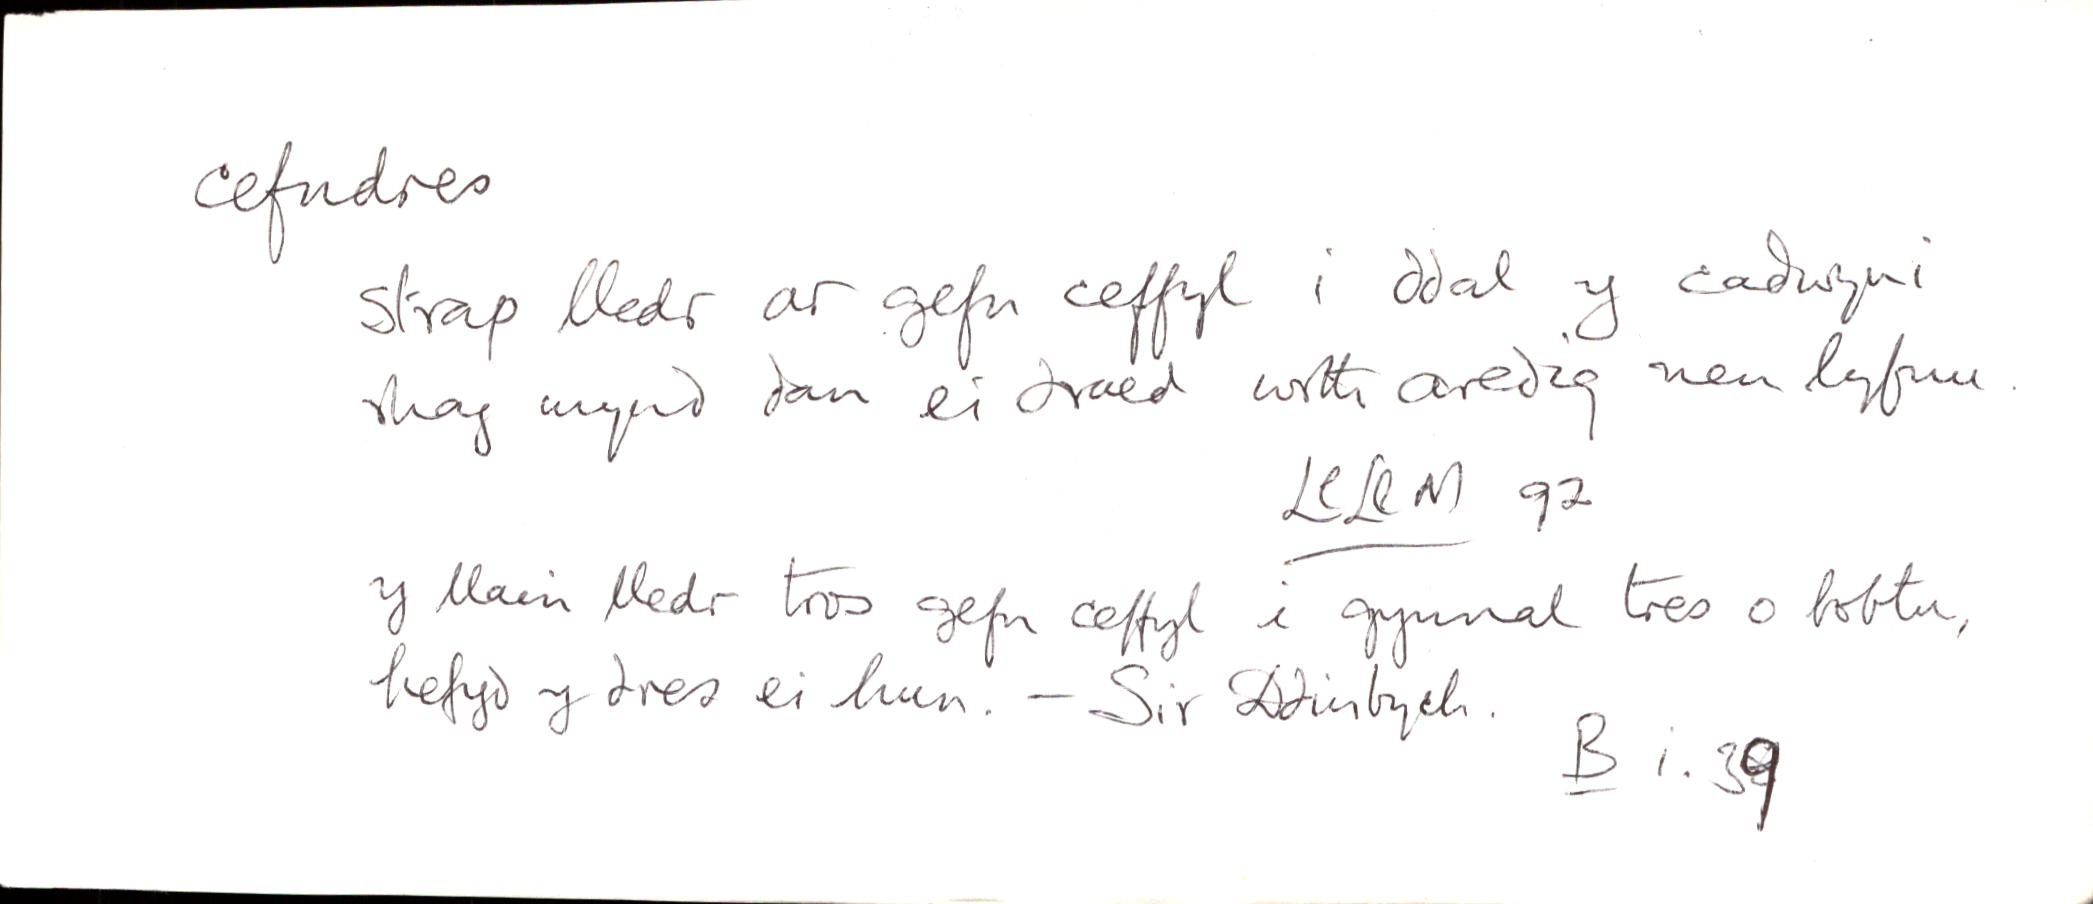 cefndres
strap lledr ar gefn ceffyl i ddal y cadwyni
rhag mynd dan ei draed wrth aredig neu lyfnu.
LlLlM 92
y llain lledr tros gefn ceffyl i gynnal tres o bobtu,
hefyd y dres ei hun. – Sir Ddinbych.
B i. 39